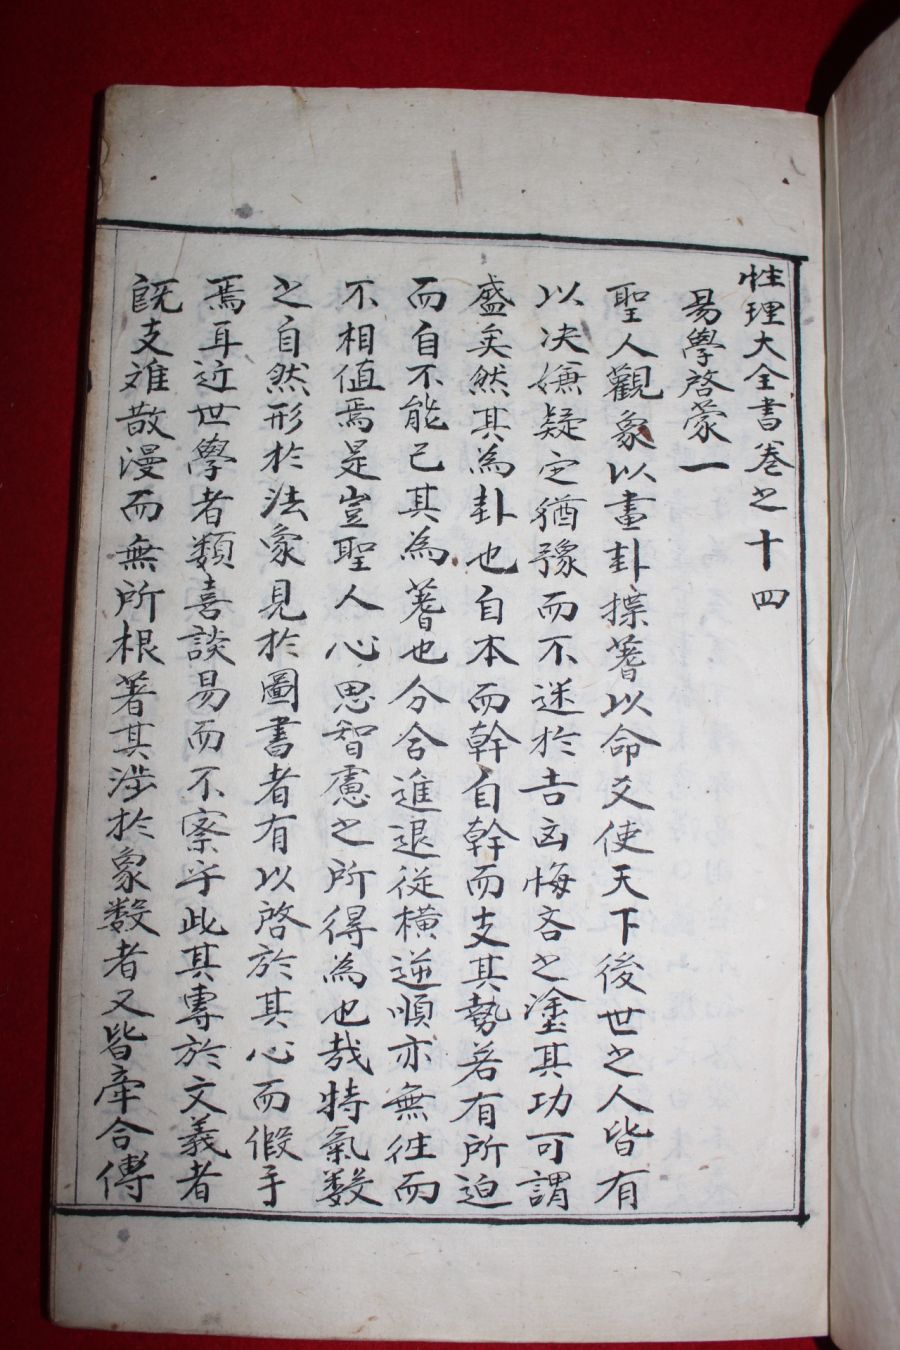 性理大全書卷之十四
易學啓蒙一
聖人觀象以畫卦揲蓍以命爻使天下後世之人皆有
以决嫌疑定猶豫而不迷於吉凶悔吝之塗其功可謂
盛矣然其為卦也自本而幹自幹而支其勢若有所迫
而自不能已其為蓍也分合進退從橫逆順亦無往而
不相值焉是豈聖人心思智慮之所得為也哉特氣數
之自然形於法象見於圖書者有以啓於其心而假手
焉耳近世學者類喜談易而不察乎此其專於文義者
旣支離散漫而無所根著其涉於象数者又皆牽合傅